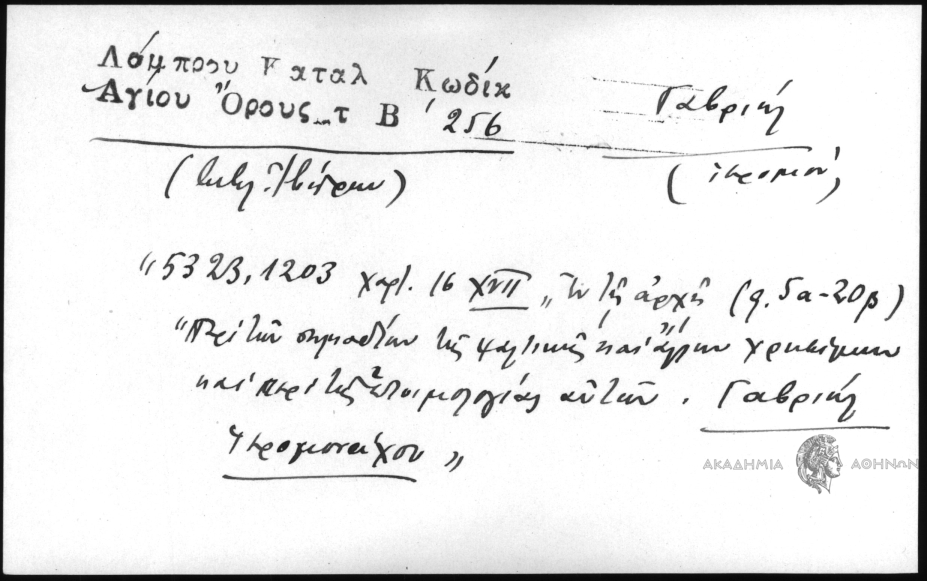 Λάμπρου Καταλ Κωδίκ
Αγίου Όρους τ Β΄ 256
Γαβριήλ
(Βιβλ. Ἰβήρων)
(ἱερομον)
"5323,1203 χαρτ. 16 XVII " Ἐν τῇ ἀρχῇ (φ. 5α-20β)
"Περὶ τῶν σημαδίων τῆς ψαλτικῆς καὶ ἄλλων χρησίμων
καὶ περὶ τῆς ἐτοιμολογίας αὐτῶν. Γαβριήλ
ἱερομονάχου "
ΑΚΑΔΗΜΙΑ ΑΘΗΝΩΝ